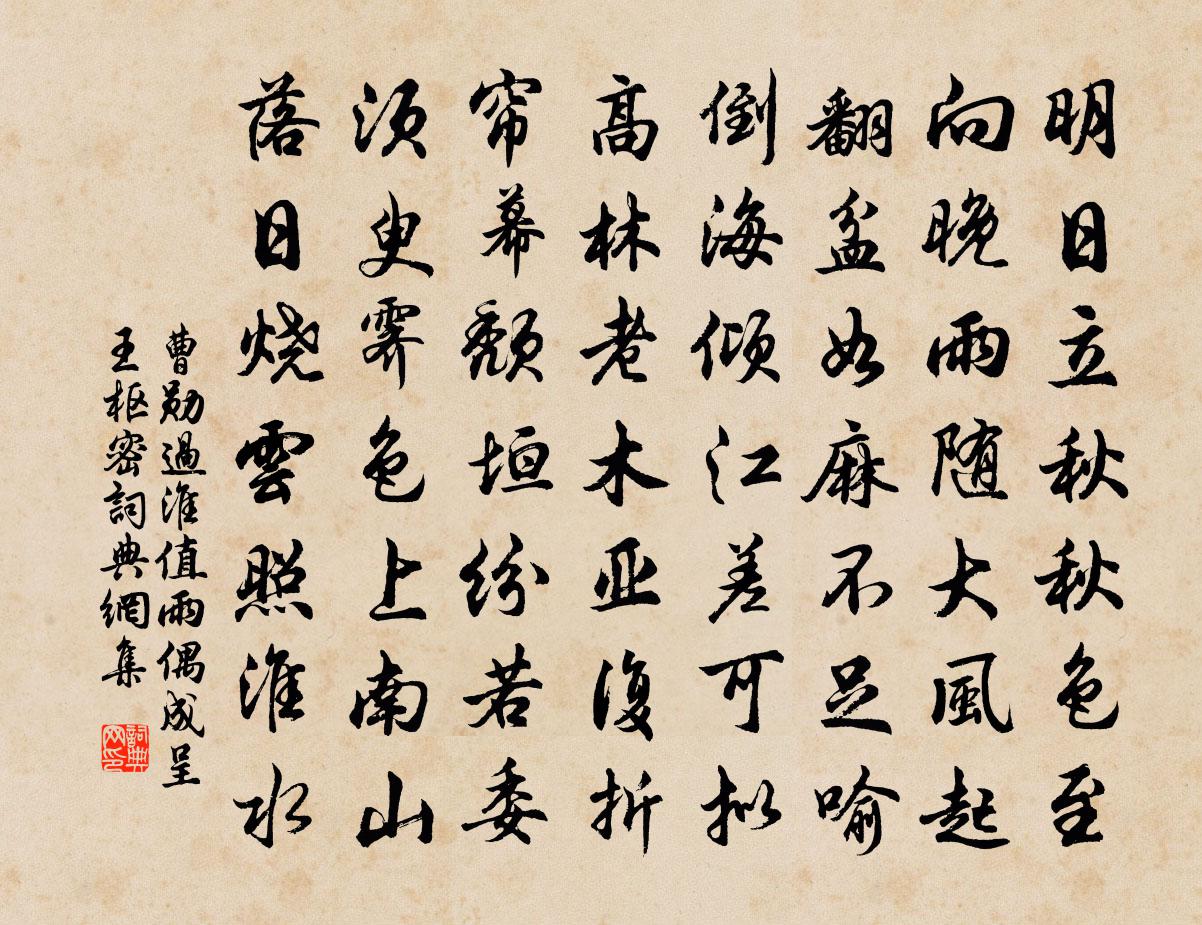 明日立秋秋色至
向晚雨随大風起
翻盆如麻不足喻
倒海傾江差可拟
高林老木亚復折
帘幕頹垣纷若委
須臾霽色上南山
落日燒雲照淮水
曹勛過淮值雨偶成呈
王枢密詞典網集
詞典
网印